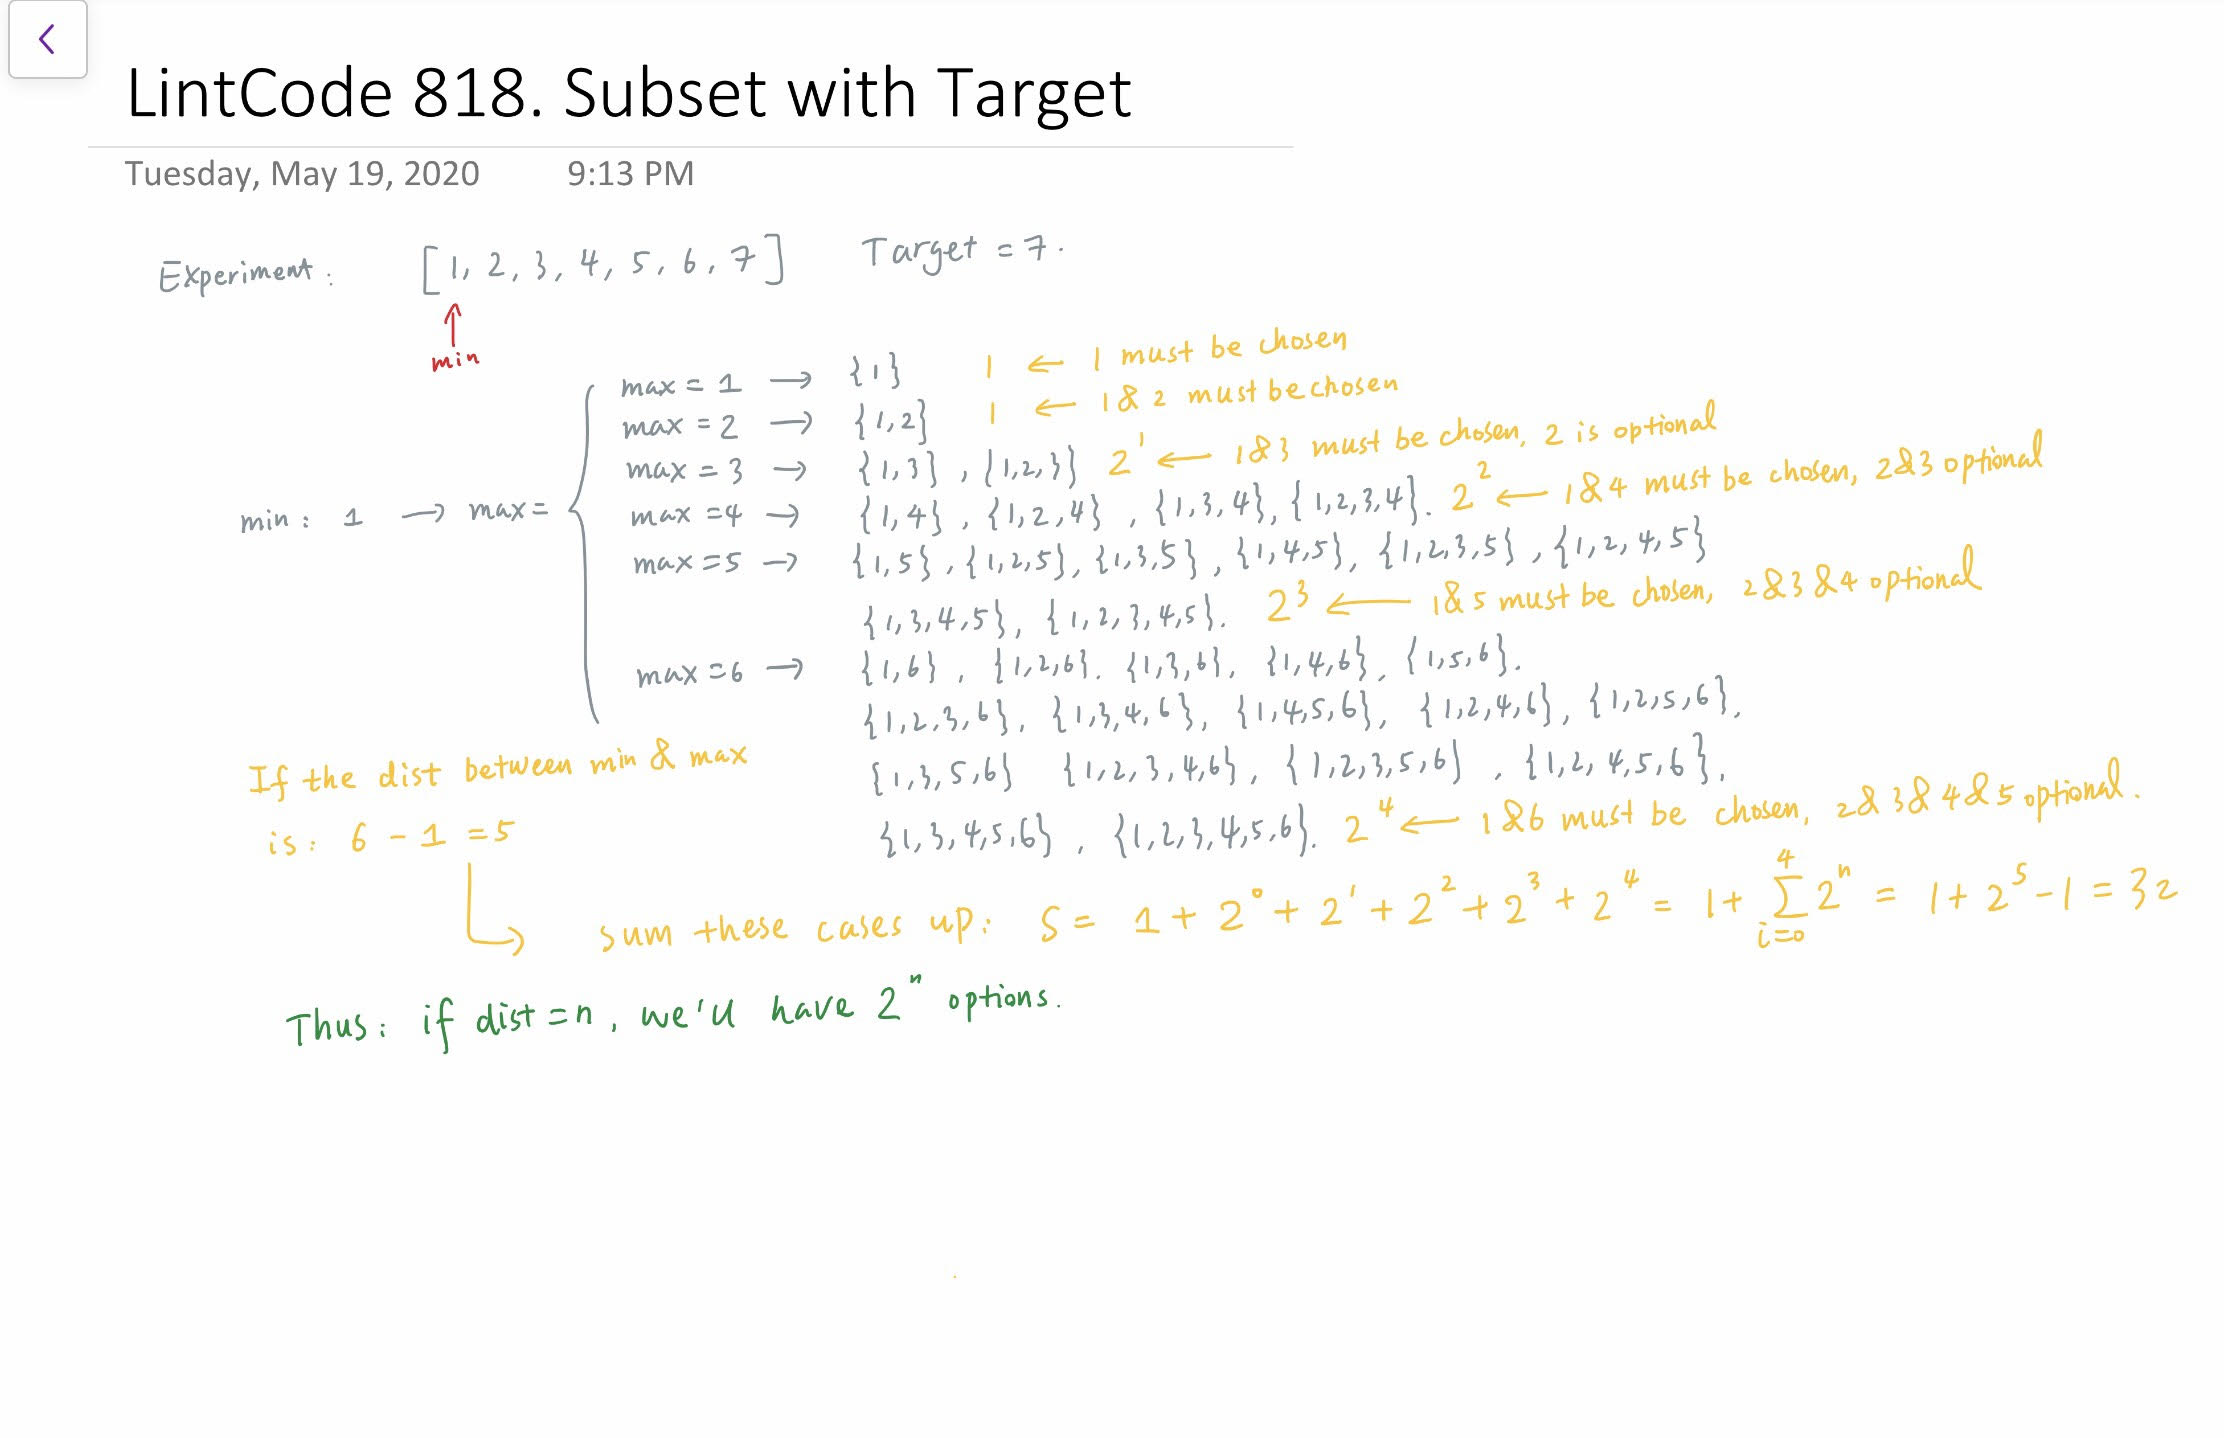 LintCode 818. Subset with Target
Tuesday, May 19, 2020 9:13 PM
Experiment: [1, 2, 3, 4, 5, 6, 7] Target = 7.
min
max = 1 → {1} 1 ← 1 must be chosen
max = 2 → {1,2} 1 ← 1 & 2 must be chosen
max = 3 → {1,3}, {1,2,3} 2¹ ← 1&3 must be chosen, 2 is optional
min: 1 → max = max =4 → {1,4}, {1,2,4}, {1,3,4}, {1,2,3,4}. 2² ← 1&4 must be chosen, 2&3 optional
max =5 → {1,5}, {1,2,5}, {1,3,5}, {1,4,5}, {1,2,3,5}, {1,2,4,5}
{1,3,4,5}, {1,2,3,4,5}. 2³ ← 1&5 must be chosen, 2&3&4 optional
max =6 → {1,6}, {1,2,6}. {1,3,6}, {1,4,6}, {1,5,6}.
{1,2,3,6}, {1,3,4,6}, {1,4,5,6}, {1,2,4,6}, {1,2,5,6},
{1,3,5,6} {1,2,3,4,6}, {1,2,3,5,6}, {1,2,4,5,6},
{1,3,4,5,6}, {1,2,3,4,5,6}. 2⁴ ← 1&6 must be chosen, 2&3&4&5 optional.
If the dist between min & max
is: 6 - 1 = 5
sum these cases up: S = 1 + 2⁰ + 2¹ + 2² + 2³ + 2⁴ = 1 + 4 Σ i=0 2ⁿ = 1 + 2⁵ - 1 = 32
Thus: if dist = n, we'll have 2ⁿ options.